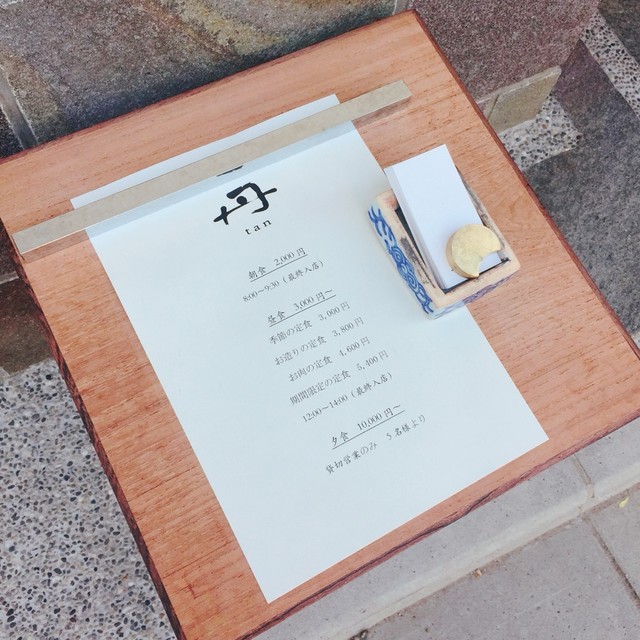 丹
tan
朝食 2,000円
8:00〜9:30（最終入店）
昼食 3,000円〜
季節の定食 3,000円
お造りの定食 3,800円
お肉の定食 4,600円
期間限定の定食 5,400円
12:00〜14:00（最終入店）
夕食 10,000円〜
貸切営業のみ 5名様より